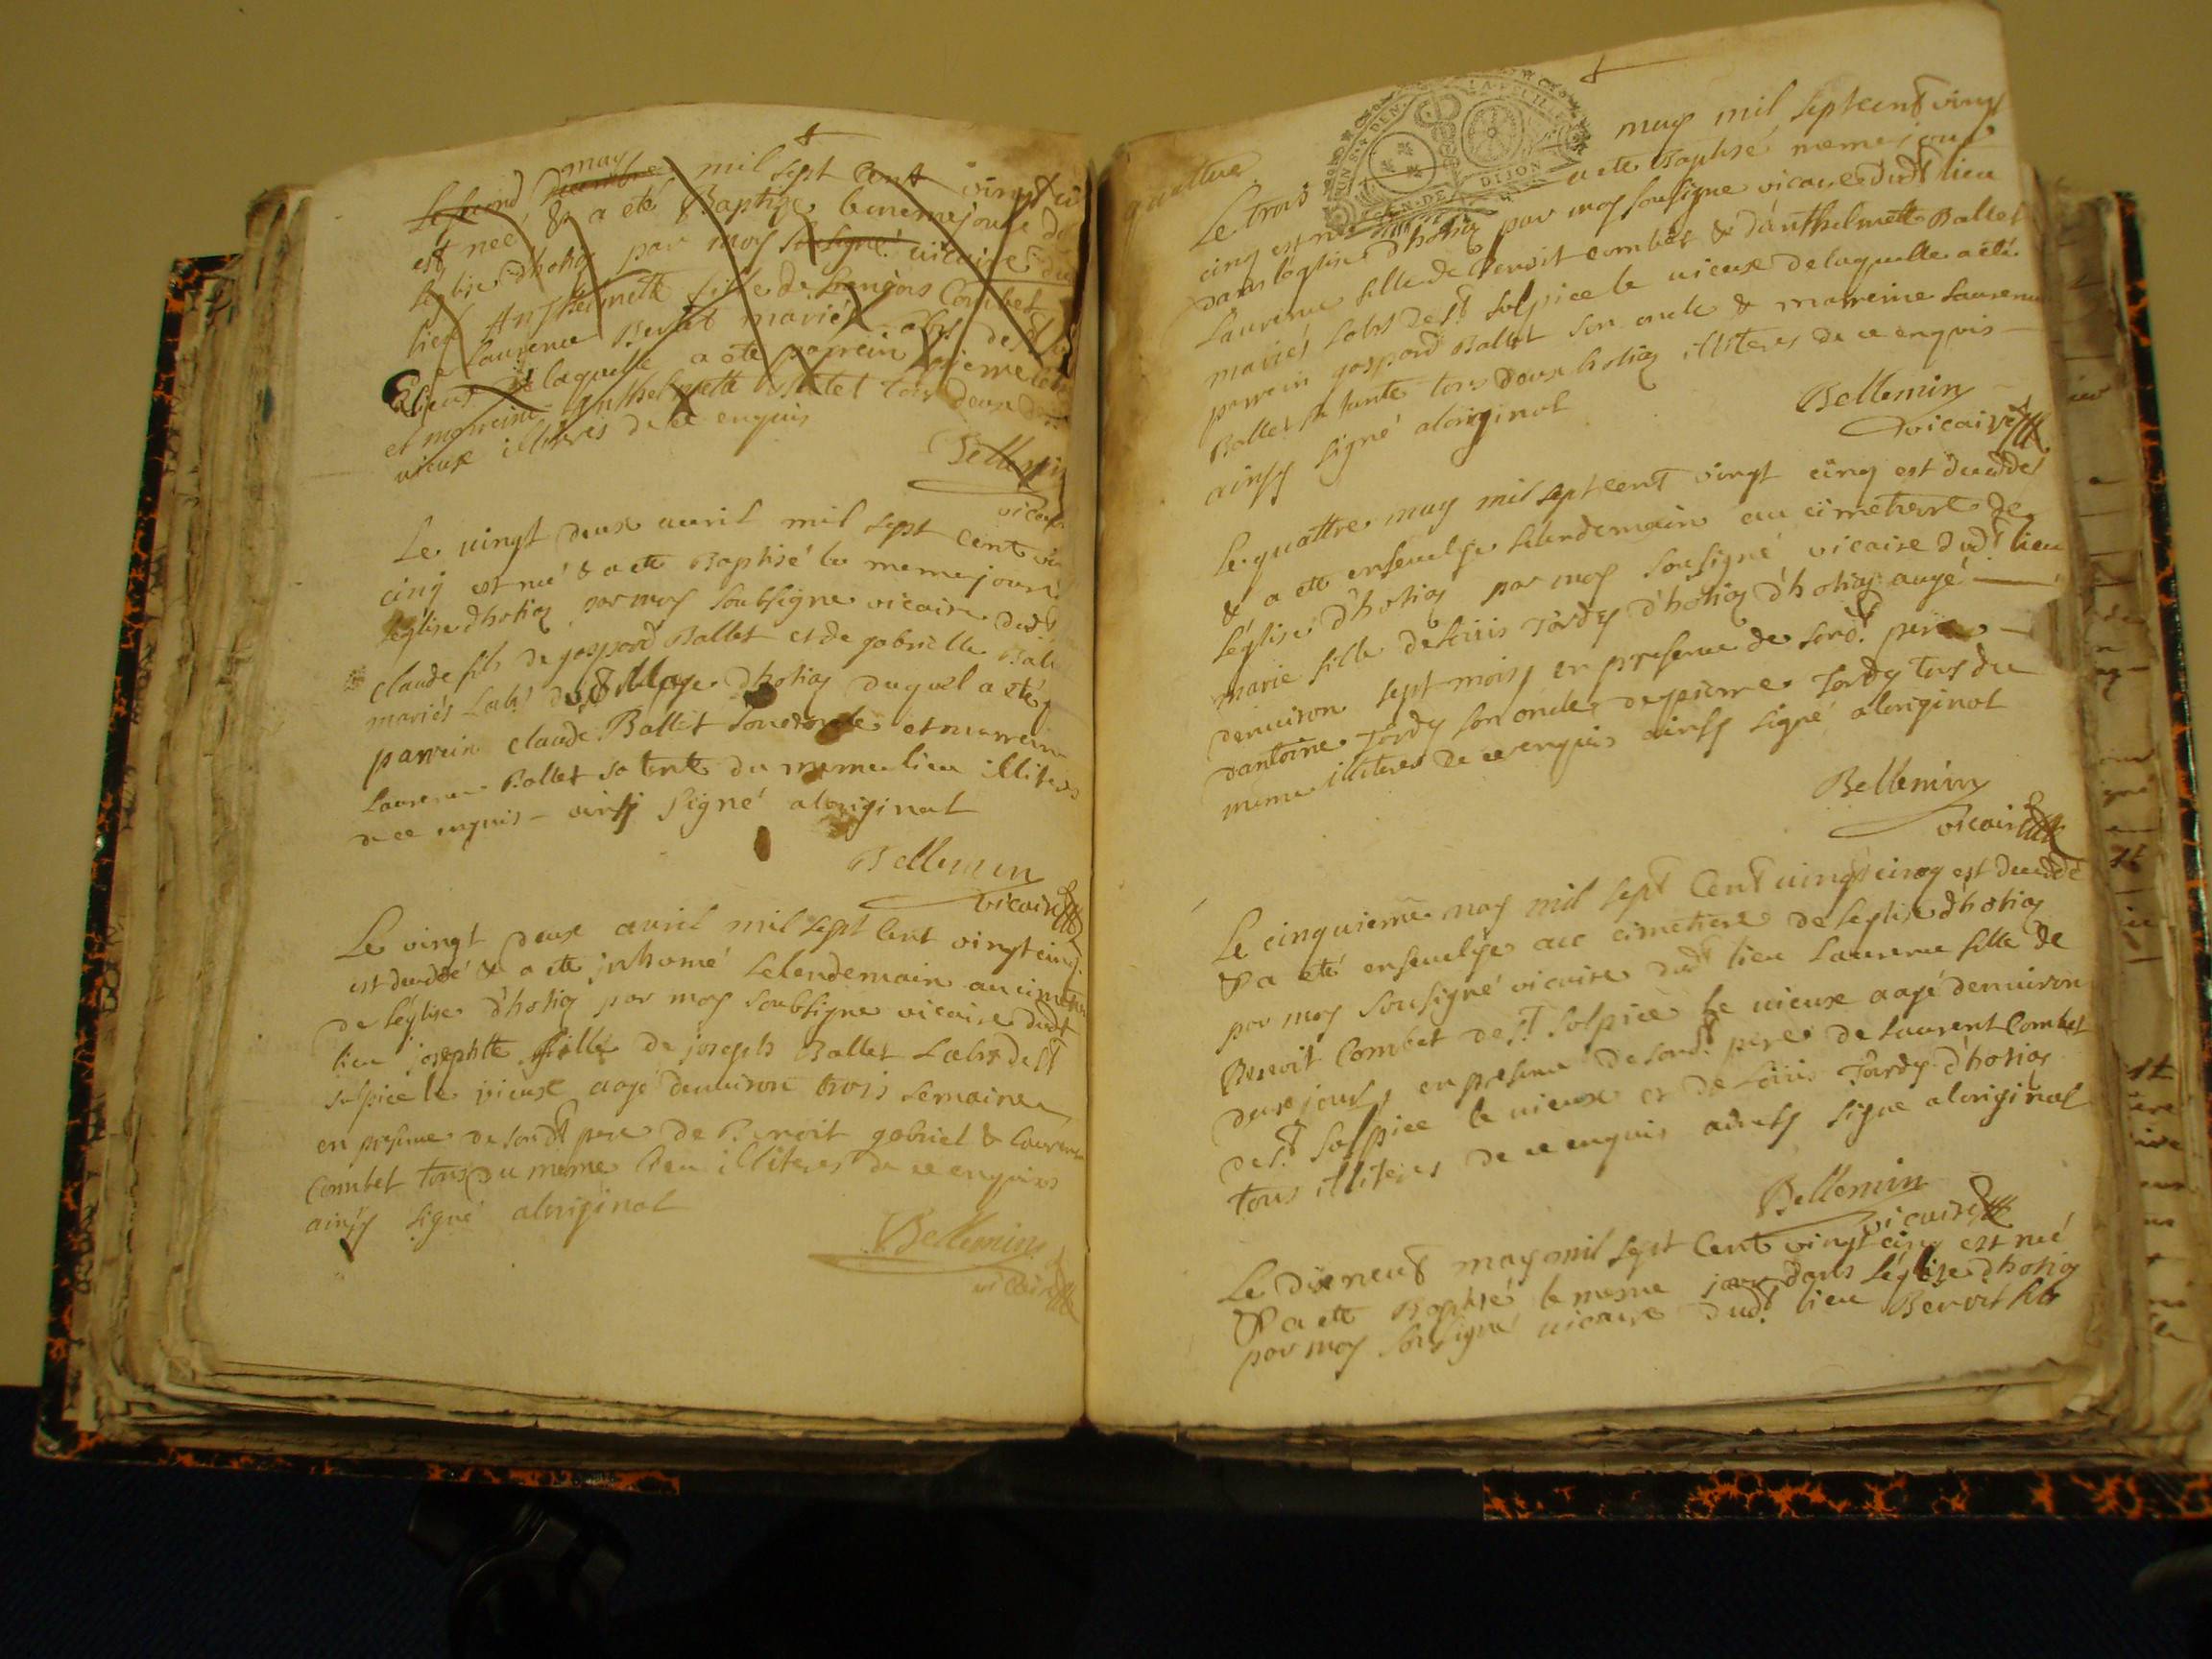 Le second may mil sept cent vingt
est neé & a eté Baptizé le meme jour
leglise dhotiaz par moy sousigné vicaire du
lieu Anthelmette fille de françois Combet
e laurence Berlet mariés
vieux de laquelle a ete parrein pierre
et marreine Anthelmette tous deux
vieux illiteres de ce enquis
Bellemin
vicaire
Le vingt deux auril mil sept cent
cinq est neé & a ete Baptisé le meme jour
leglise dhotiaz par moy soubsigne vicaire dudt
claude fils de gaspard Ballet et de gabrielle
mariés Labs du village dhotiaz duquel a eté
parrein claude Ballet son oncle et marreine
Laurence Ballet sa tente du meme lieu illiteres
de ce enquis - ainsy signé aloriginal
Bellemin
vicaire
Le vingt deux avril mil sept cent vingt cinq
est decedé & a ete inhumé le lendemain au cimetiere
de léglise d'hotiaz par moy soubsigne vicaire dudt
lieu josephte fille de joseph Ballet Labs de st
sulpice le vieux aagé denuiron trois semaines
en presence de sondt pere de Benoit gabriel & Laurence
Combet tous du meme lieu illiteres de ce enquis
ainsy signé aloriginal
Bellemin
vicaire
quattre
INS·R·DEN· LA·FEUILLE
GEN·DE DIJON
Le trois may mil septcent vingt
cinq est née a ete Baptisé meme jour
dans léglise d'hotiaz par moy sousigne vicaire dudt lieu
Laurence fille de Benoit combet & d'anthelmette Ballet
mariés Labs de st sulpice le uieux de laquelle a eté
parrein gaspard Ballet son oncle & marreine Laurence
Ballet sa tante tous deux hotiaz illiteres de ce enquis
ainsy signé aloriginal
Bellemin
vicaire
Le quattre may mil sept cent vingt cinq est decedé
& a ete enseuelye lelendemain au cimetiere de
léglise d'hotiaz par moy sousigné vicaire dudt lieu
marie fille de Louis Tardy d'hotiaz d'hotiaz aagé
denuiron sept mois en presence de sondt pere
dantoine Tardy son oncle, de pierre Tardy tous du
meme illiteres de ce enquis ainsy signé aloriginal
Bellemin
vicaire
Le cinquieme may mil sept Cent vingt cinq est decedé
& a eté enseuelye au cimetiere de leglise d'hotiaz
par moy sousigné vicaire dudt lieu Laurence fille de
Benoit Combet de st sulpice le uieux aagé denuiron
deux jours, en presence de sondt pere de Laurent Combet
de st sulpice le uieux et de Louis Tardy d'hotiaz
tous illiteres de ce enquis ainsy signe aloriginal
Bellemin
vicaire
Le dixneuf may mil sept Cent vingt cinq est neé
& a ete Baptisé le meme jour dans léglise dhotiaz
par moy sousigné uicaire dudt lieu Benoit fils